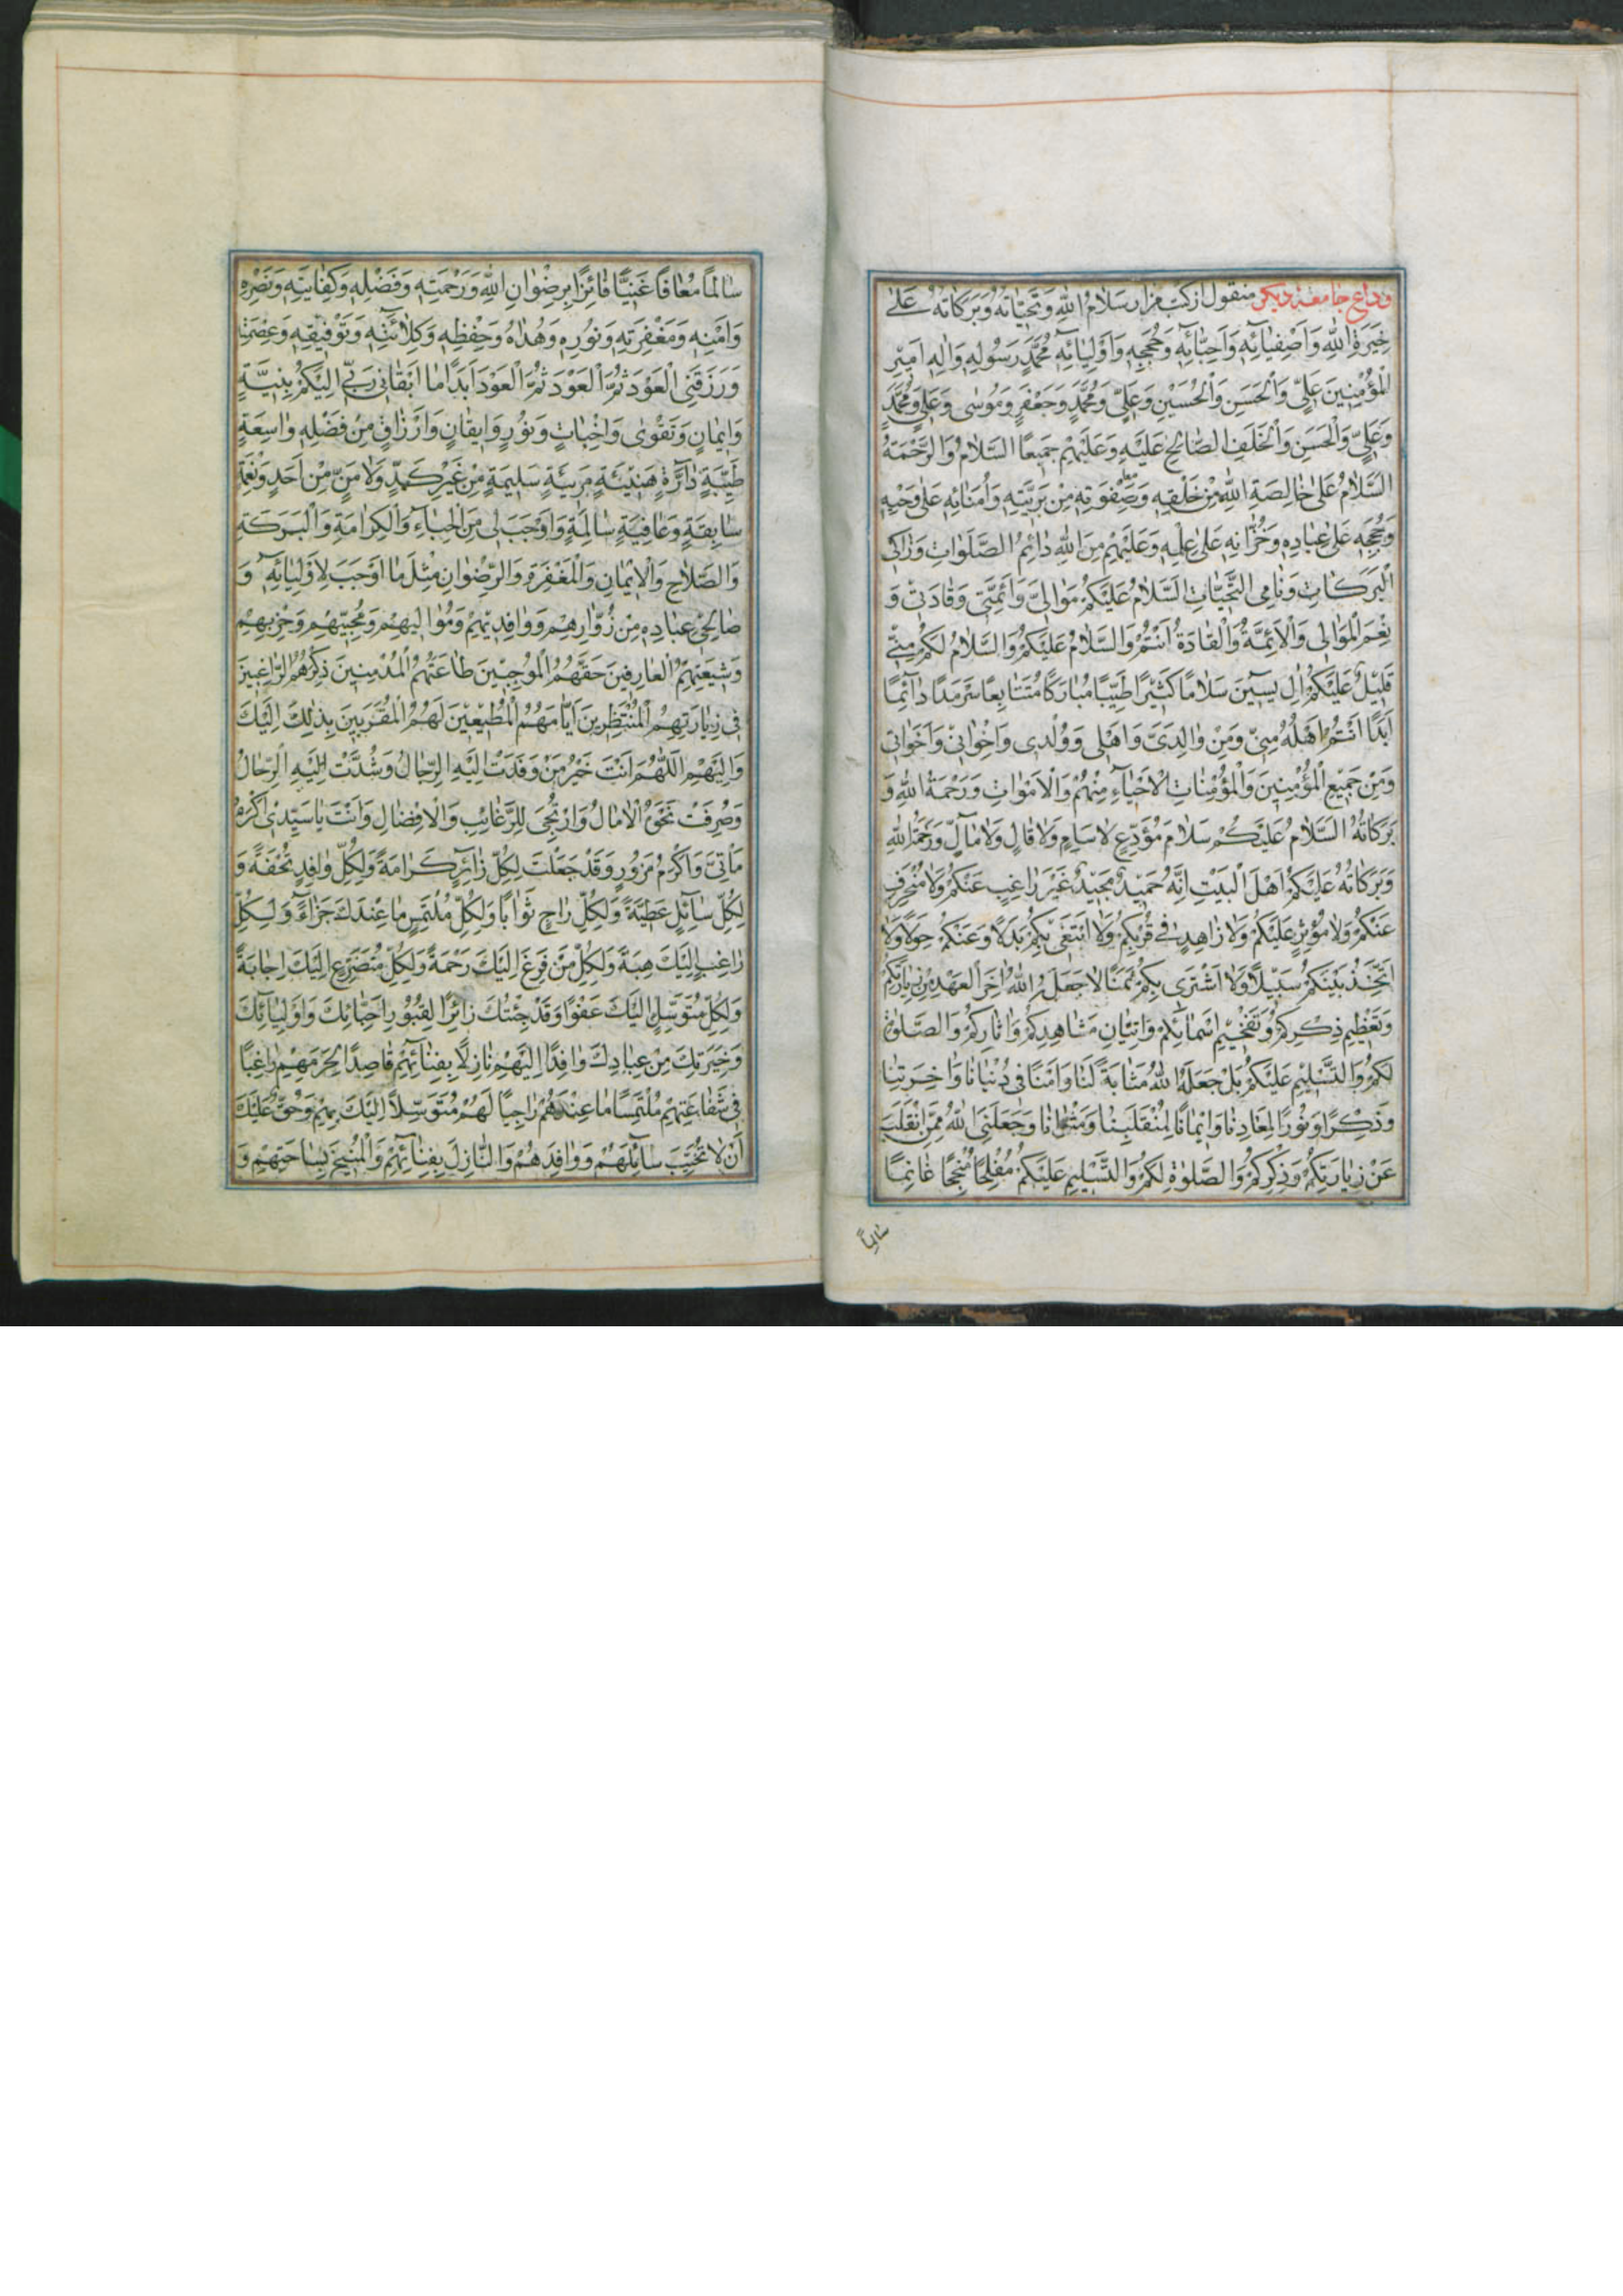 وداع جامعهٔ دیکر منقول از کتب مزار سَلَامُ اللهِ وَتَحِيَّاتُهُ وَبَرَكَاتُهُ عَلَىٰ
خِيَرَةِ اللهِ وَاَصْفِيَائِهِ وَاَحِبَّائِهِ وَحُجَجِهِ وَاَوْلِيَائِهِ مُحَمَّدٍ رَسُولِهِ وَالِهِ اَمِيرِ
الْمُؤْمِنِينَ عَلِيٍّ وَالْحَسَنِ وَالْحُسَيْنِ وَعَلِيٍّ وَمُحَمَّدٍ وَجَعْفَرٍ وَمُوسٰى وَعَلِيٍّ وَمُحَمَّدٍ
وَعَلِيٍّ وَالْحَسَنِ وَالْخَلَفِ الصَّالِحِ عَلَيْهِ وَعَلَيْهِمْ جَمِيعًا السَّلَامُ وَالرَّحْمَةُ
السَّلَامُ عَلٰى خَالِصَةِ اللهِ مِنْ خَلْقِهِ وَصَفْوَتِهِ مِنْ بَرِيَّتِهِ وَاُمَنَائِهِ عَلٰى وَحْيِهِ
وَحُجَجِهِ عَلٰى عِبَادِهِ وَخُزَّانِهِ عَلٰى عِلْمِهِ وَعَلَيْهِمْ مِنَ اللهِ دَائِمُ الصَّلَوَاتِ وَزَاكِى
الْبَرَكَاتِ وَنَامِى التَّحِيَّاتِ اَلسَّلَامُ عَلَيْكُمْ مَوَالِيَّ وَاَئِمَّتِى وَقَادَتِى وَ
نِعْمَ الْمَوَالِى وَالْاَئِمَّةُ وَالْقَادَةُ اَنْتُمْ وَالسَّلَامُ عَلَيْكُمْ وَالسَّلَامُ لَكُمْ مِنِّى
قَلِيلٌ عَلَيْكُمْ اٰلَ يٰسِينَ سَلَامًا كَثِيرًا طَيِّبًا مُبَارَكًا مُتَتَابِعًا سَرْمَدًا دَائِمًا
اَبَدًا اَنْتُمْ اَهْلُهُ مِنِّى وَمِنْ وَالِدَىَّ وَاَهْلِى وَوُلْدِى وَاِخْوَانِى وَاَخَوَاتِى
وَمِنْ جَمِيعِ الْمُؤْمِنِينَ وَالْمُؤْمِنَاتِ الْاَحْيَاءِ مِنْهُمْ وَالْاَمْوَاتِ وَرَحْمَةُ اللهِ وَ
بَرَكَاتُهُ السَّلَامُ عَلَيْكُمْ سَلَامَ مُوَدِّعٍ لَا سَاِمٍ وَلَا قَالٍ وَلَا مَالٍّ وَرَحْمَةُ اللهِ
وَبَرَكَاتُهُ عَلَيْكُمْ اَهْلَ الْبَيْتِ اِنَّهُ حَمِيدٌ مَجِيدٌ غَيْرَ رَاغِبٍ عَنْكُمْ وَلَا مُنْحَرِفٍ
عَنْكُمْ وَلَا مُؤْثِرٍ عَلَيْكُمْ وَلَا زَاهِدٍ فِى قُرْبِكُمْ وَلَا اَبْتَغِى بِكُمْ بَدَلًا وَعَنْكُمْ حِوَلًا وَلَا
اَتَّخِذُ بَيْنَكُمْ سَبِيلًا وَلَا اَشْتَرِى بِكُمْ ثَمَنًا لَا جَعَلَهُ اللهُ اٰخِرَ الْعَهْدِ مِنْ زِيَارَتِكُمْ
وَتَعْظِيمِ ذِكْرِكُمْ وَتَفْخِيمِ اَسْمَائِكُمْ وَاِتْيَانِ مَشَاهِدِكُمْ وَاٰثَارِكُمْ وَالصَّلٰوةِ
لَكُمْ وَالتَّسْلِيمِ عَلَيْكُمْ بَلْ جَعَلَهُ اللهُ مَثَابَةً لَنَا وَاَمْنًا فِى دُنْيَانَا وَاٰخِرَتِنَا
وَذِكْرًا وَنُورًا لِمَعَادِنَا وَاِيمَانًا لِمُنْقَلَبِنَا وَمَثْوَانَا وَجَعَلَنِىَ اللهُ مِمَّنِ انْقَلَبَ
عَنْ زِيَارَتِكُمْ وَذِكْرِكُمْ وَالصَّلٰوةِ لَكُمْ وَالتَّسْلِيمِ عَلَيْكُمْ مُفْلِحًا مُنْجِحًا غَانِمًا
سَالِمًا
سَالِمًا مُعَافًا غَنِيًّا فَائِزًا بِرِضْوَانِ اللهِ وَرَحْمَتِهِ وَفَضْلِهِ وَكِفَايَتِهِ وَنَصْرِهِ
وَاَمْنِهِ وَمَغْفِرَتِهِ وَنُورِهِ وَهُدَاهُ وَحِفْظِهِ وَكِلَائَتِهِ وَتَوْفِيقِهِ وَعِصْمَتِهِ
وَرَزَقَنِى الْعَوْدَ ثُمَّ الْعَوْدَ ثُمَّ الْعَوْدَ اَبَدًا مَا اَبْقَانِى رَبِّى اِلَيْكُمْ بِنِيَّةٍ
وَاِيمَانٍ وَتَقْوٰى وَاِخْبَاتٍ وَنُورٍ وَاِيقَانٍ وَاَرْزَاقٍ مِنْ فَضْلِهِ وَاسِعَةٍ
طَيِّبَةٍ دَارَّةٍ هَنِيئَةٍ مَرِيئَةٍ سَلِيمَةٍ مِنْ غَيْرِ كَدٍّ وَلَا مَنٍّ مِنْ اَحَدٍ وَنِعْمَةٍ
سَابِقَةٍ وَعَافِيَةٍ سَالِمَةٍ وَاَوْجَبَ لِى مِنَ الْحِبَاءِ وَالْكَرَامَةِ وَالْبَرَكَةِ
وَالصَّلَاحِ وَالْاِيمَانِ وَالْمَغْفِرَةِ وَالرِّضْوَانِ مِثْلَ مَا اَوْجَبَ لِاَوْلِيَائِهِ وَ
صَالِحِى عِبَادِهِ مِنْ زُوَّارِهِمْ وَوَافِدِيهِمْ وَمُوَالِيهِمْ وَمُحِبِّيهِمْ وَحِزْبِهِمْ
وَشِيعَتِهِمُ الْعَارِفِينَ حَقَّهُمُ الْمُوجِبِينَ طَاعَتَهُمُ الْمُدْمِنِينَ ذِكْرَهُمُ الرَّاغِبِينَ
فِى زِيَارَتِهِمُ الْمُنْتَظِرِينَ اَيَّامَهُمُ الْمُطِيعِينَ لَهُمُ الْمُقَرَّبِينَ بِذٰلِكَ اِلَيْكَ
وَاِلَيْهِمْ اَللّٰهُمَّ اَنْتَ خَيْرُ مَنْ وَفَدَتْ اِلَيْهِ الرِّجَالُ وَشُدَّتْ اِلَيْهِ الرِّحَالُ
وَصُرِفَتْ نَحْوَهُ الْاٰمَالُ وَارْتُجِىَ لِلرَّغَائِبِ وَالْاِفْضَالِ وَاَنْتَ يَا سَيِّدِى اَكْرَمُ
مَأْتِىٍّ وَاَكْرَمُ مَزُورٍ وَقَدْ جَعَلْتَ لِكُلِّ زَائِرٍ كَرَامَةً وَلِكُلِّ وَافِدٍ تُحْفَةً وَ
لِكُلِّ سَائِلٍ عَطِيَّةً وَلِكُلِّ رَاجٍ ثَوَابًا وَلِكُلِّ مُلْتَمِسٍ مَا عِنْدَكَ جَزَاءً وَلِكُلِّ
رَاغِبٍ اِلَيْكَ هِبَةً وَلِكُلِّ مَنْ فَزِعَ اِلَيْكَ رَحْمَةً وَلِكُلِّ مُتَضَرِّعٍ اِلَيْكَ اِجَابَةً
وَلِكُلِّ مُتَوَسِّلٍ اِلَيْكَ عَفْوًا وَقَدْ جِئْتُكَ زَائِرًا لِقُبُورِ اَحِبَّائِكَ وَاَوْلِيَائِكَ
وَخِيَرَتِكَ مِنْ عِبَادِكَ وَافِدًا اِلَيْهِمْ نَازِلًا بِفِنَائِهِمْ قَاصِدًا لِحَرَمِهِمْ رَاغِبًا
فِى شَفَاعَتِهِمْ مُلْتَمِسًا مَا عِنْدَهُمْ رَاجِيًا لَهُمْ مُتَوَسِّلًا اِلَيْكَ بِهِمْ وَحَقٌّ عَلَيْكَ
اَنْ لَا تُخَيِّبَ سَائِلَهُمْ وَوَافِدَهُمْ وَالنَّازِلَ بِفِنَائِهِمْ وَالْمُنِيخَ بِسَاحَتِهِمْ وَ